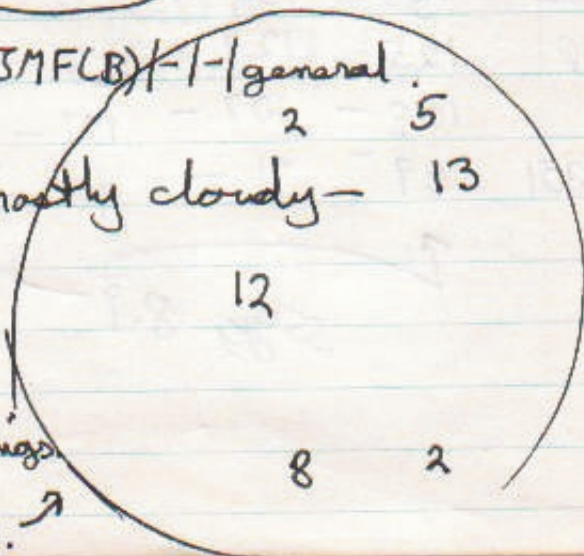 JMF(B)/-/-/general.
2 5
mostly cloudy— 13
12
8 2